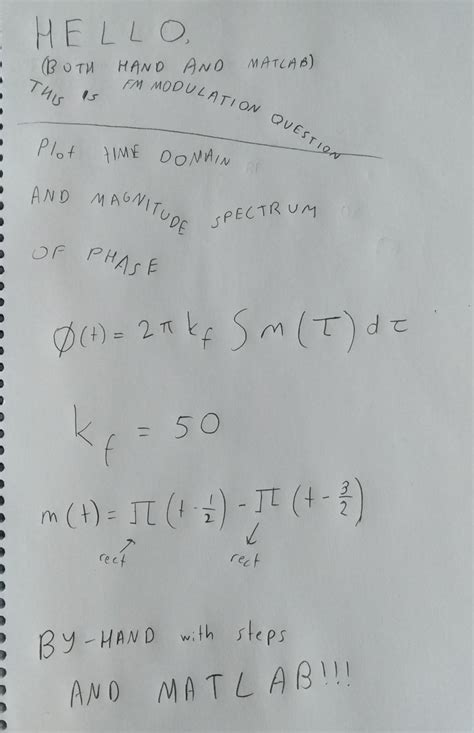 HELLO,
(BOTH HAND AND MATLAB)
THIS IS FM MODULATION QUESTION
Plot TIME DOMAIN
AND MAGNITUDE SPECTRUM
OF PHASE
∅(t) = 2π k_f ∫ m(τ) dτ
k_f = 50
m(t) = Π(t - 1/2) - Π(t - 3/2)
rect rect
BY-HAND with steps
AND MATLAB!!!